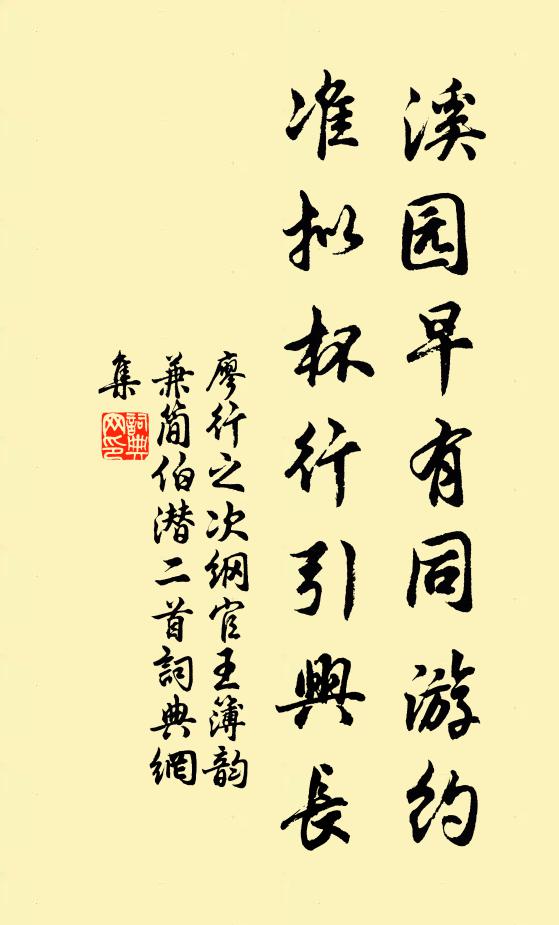 溪园早有同游约
准拟杯行引興長
廖行之次纲官王簿韵
兼简伯潜二首詞典網
集
詞典
网印